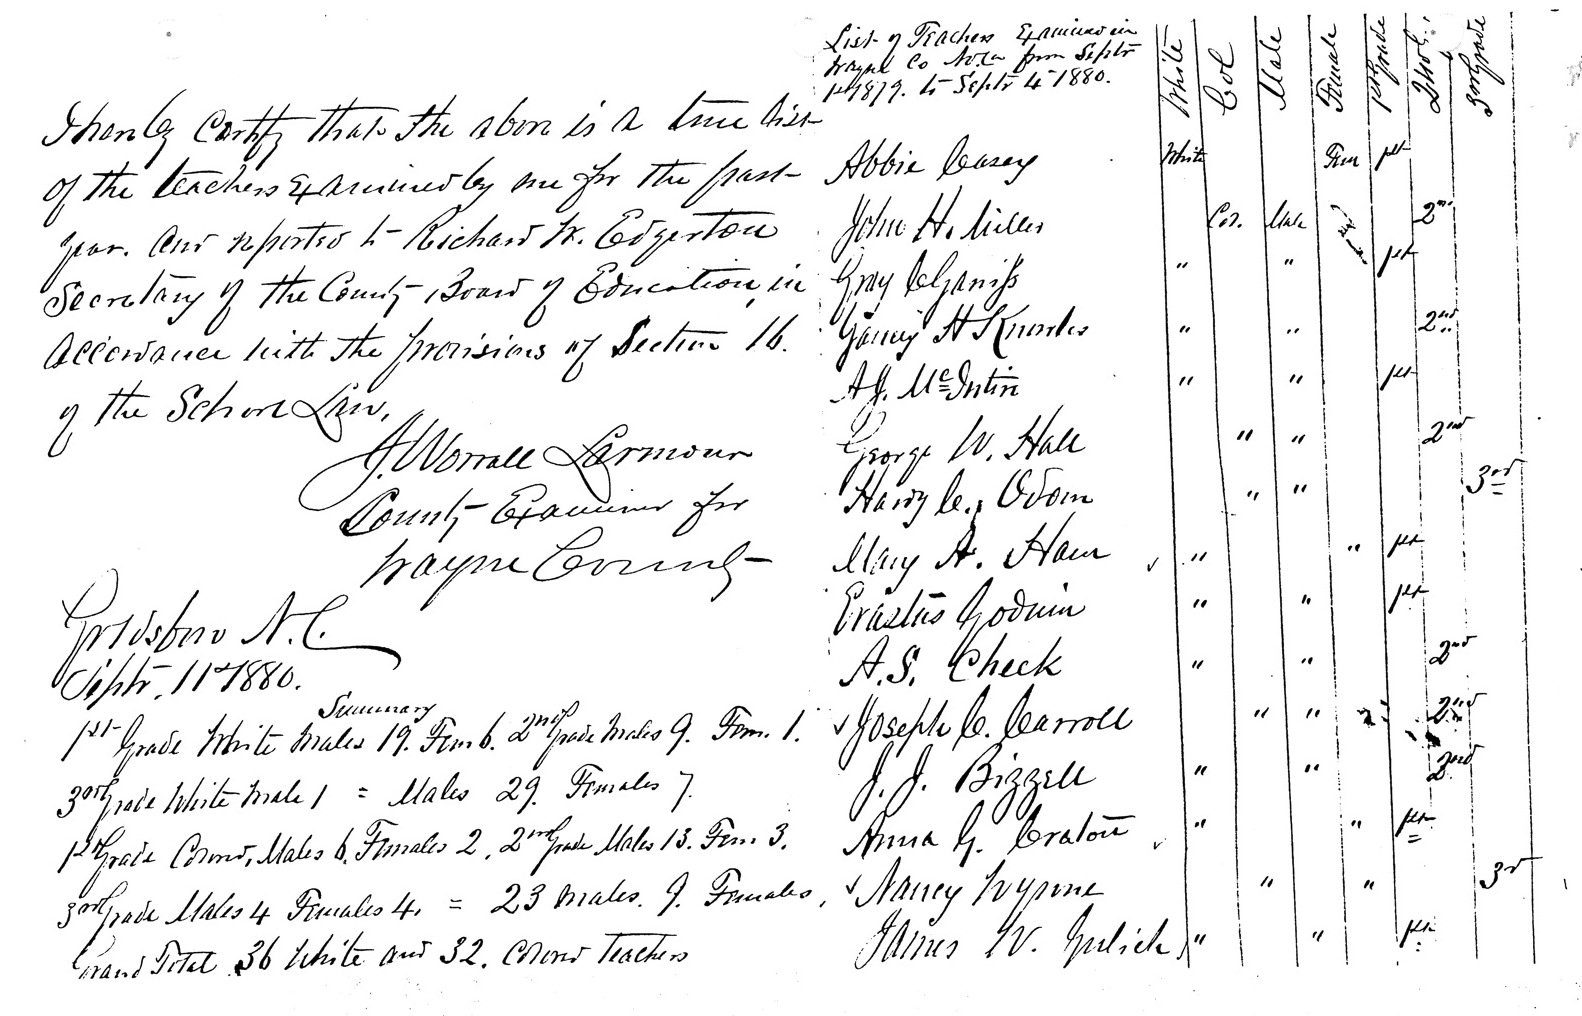 I hereby Certify that the above is a true list
of the teachers Examined by me for the past
year. And reported to Richard W. Edgerton
Secretary of the County Board of Education, in
Accordance with the provisions of Section 16.
of the School Law.
J. Worrall Larmour
County Examiner for
Wayne County
Goldsboro N.C.
Septr. 11th 1880.
Summary
1st Grade White Males 19. Fem 6. 2nd Grade Males 9. Fem. 1.
3rd Grade White Male 1 = Males 29. Females 7.
1st Grade Colored, Males 6. Females 2. 2nd Grade Males 13. Fem 3.
3rd Grade Males 4 Females 4. = 23 Males. 9. Females.
Grand Total 36 White and 32. Colored Teachers
List of Teachers Examined in
Wayne Co No. Ca from Septr
1st 1879. to Septr 4th 1880.
White Col Male Female 1st Grade 2nd 3rd Grade
Abbie Casey White Fem 1st
John H. Miller Col. Male 2nd
Gray " " 1st
H Knowles " " 2nd
A. J. McIntire " " 1st
George W. Hall " " 2nd
Hardy C. Odom " " 3rd
Mary A. Ham " " 1st
Erastus Godwin " " 1st
A. S. Cheek " " 2nd
Joseph C. Carroll " " 2nd
J. J. Bizzell " " 2nd
Anna G. Craton " " 1st
Nancy Wynne " " 3rd
James W. Gulick " " 1st